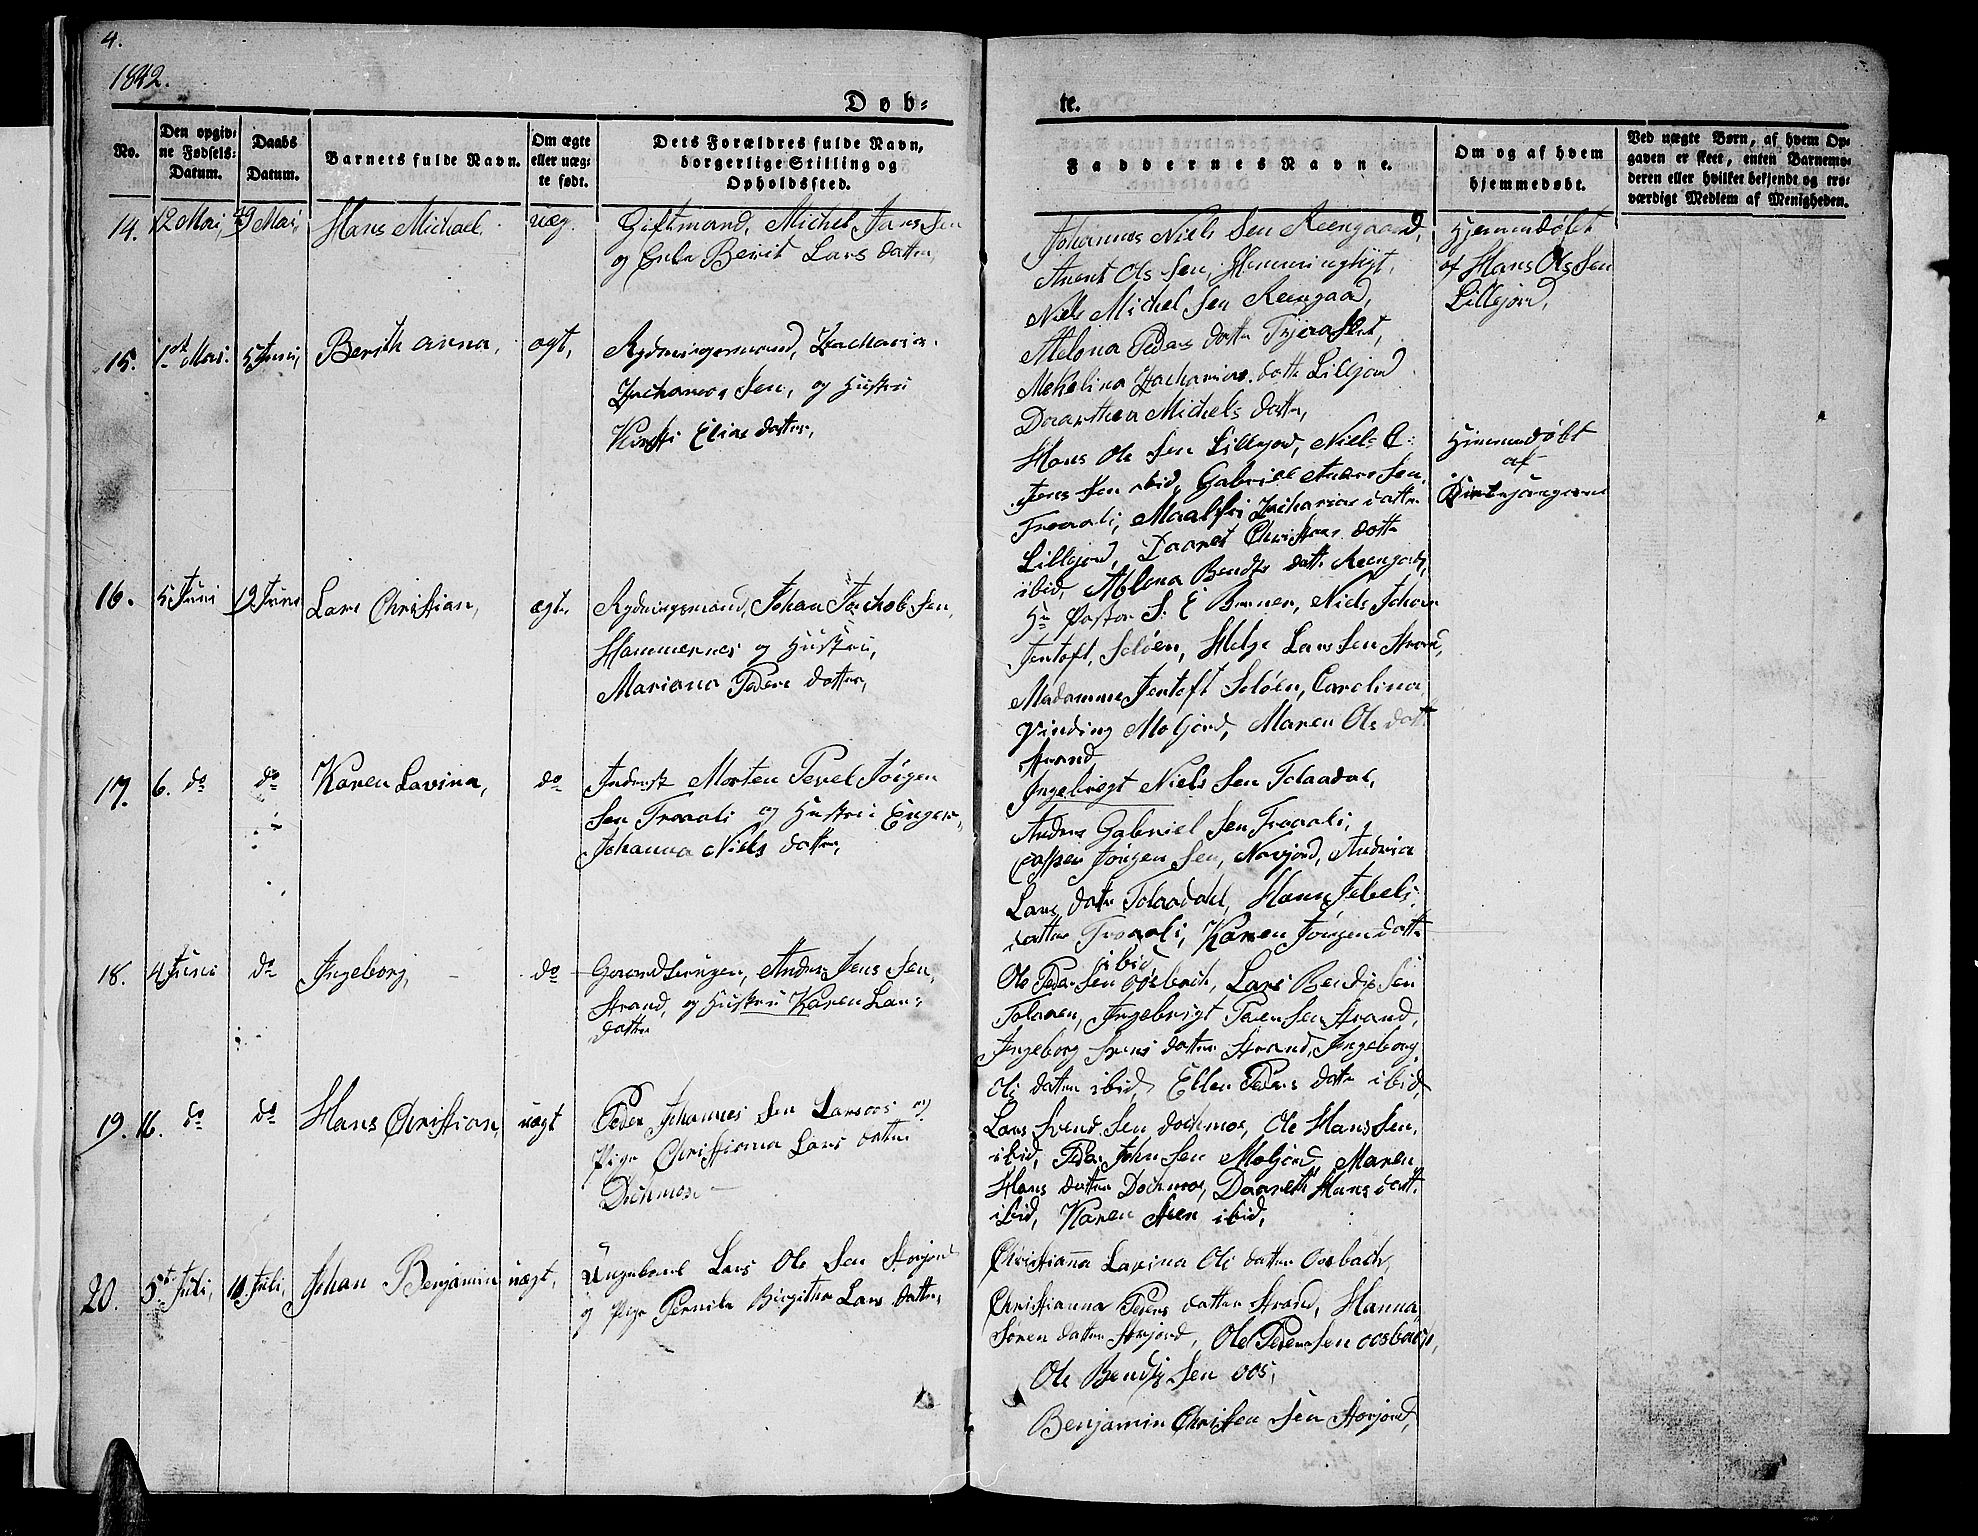 4.
1842.
Døb-
te.
No.
Den opgiv-
ne Fødsels-
Datum.
Daabs
Datum.
Barnets fulde Navn.
Om ægte
eller uæg-
te født.
Dets Forældres fulde Navn,
borgerlige Stilling og
Opholdssted.
Faddernes Navne.
Om og af hvem
hjemmedøbt.
Ved uægte Børn, af hvem Op-
gaven er skeet, enten Barnemo-
deren eller hvilket bekjendt og tro-
værdigt Medlem af Menigheden.
14. 12 Mai, 29 Mai, Hans Michael uæg.
Giftmand, Michel Jans Sen
og Enke Berit Lars datter,
Johannes Niels Sen Reengaard,
Anent Ols Sen, Hemminghyt,
Niels Michel Sen Reengaard,
Helena Peders datter
Mekelina Zacharias datter Lillejord
Daarthea Michels datter,
Hjemmedøbt
af Hans Ols Sen
Lillejord,
15. 1st Mai. 5 Juni, Berith Anna, ægt,
Rydningsmand, Zacharias
Zacharias Sen, og Hustru
Kirsti Elias datter,
Hans Ole Sen Lillejord, Niels
Jens Sen ibid, Gabriel Anders Sen,
Troali, Zacharias datter
Lillejord, Daaret Christians datter
ibid, Helena Bendts datter Reengaard,
Hjemmedøbt
af
16. 5 Juni 19 Juni Lars Christian, ægt,
Rydningsmand, Johan Jachob Sen,
Hammernes og Hustru,
Mariana Peders datter,
Hr Pastor S. E. Niels Johan
Jentoft, Soløen, Helge Lars Sen Strand,
Madamme Jentoft Soløen, Carolina
Vinding Moljord, Maren Ols datter
Strand
17. 6. do do Karen Lavina, do
Inderst Morten Pevel Jørgen
Sen Troali og Hustru Enger
Johanna Niels datter,
Ingebrigt Niels Sen Tolaadal,
Anders Gabriel Sen Troali,
Casper Jørgen Sen, Navjord, Andrea
Lars datter Tolaadal, Hanna
datter Troali, Karen Jørgen datter
ibid
18. 4 Juni do Ingeborg, do
Gaardbrugen, Anders Jens Sen,
Strand, og Hustru Karen Lars
datter
Ole Peder Sen Oosbach, Lars Bendix Sen
Tolanen, Ingebrigt Peder Sen Strand,
Ingeborg Svens datter Strand, Ingeborg
Ols datter ibid, Ellen Peders datter ibid,
19. 16. do do Hans Christian, uægt
Peder Johannes Sen Larsoos og
Pige Christianna Lars datter
Dochmoe
Lars Svend Sen Dochmoe, Ole Hans Sen,
ibid, Peder John Sen Moljord, Maren
Hans datter Dochmoe, Daareth Hans datter
ibid, Karen ibid,
20. 5te Juli, 10. Juli, Johan Benjamin uægt,
Ungekarl Lars Ole Sen Storjord
og Pige Pernila Birgitha Lars datter,
Christianna Lavina Ols datter Oosbach,
Christianna Peders datter Strand, Hanna
Søren datter Storjord, Ole Peder Sen Oosbach,
Ole Bendix Sen Oos,
Benjamin Christen Sen Storjord,